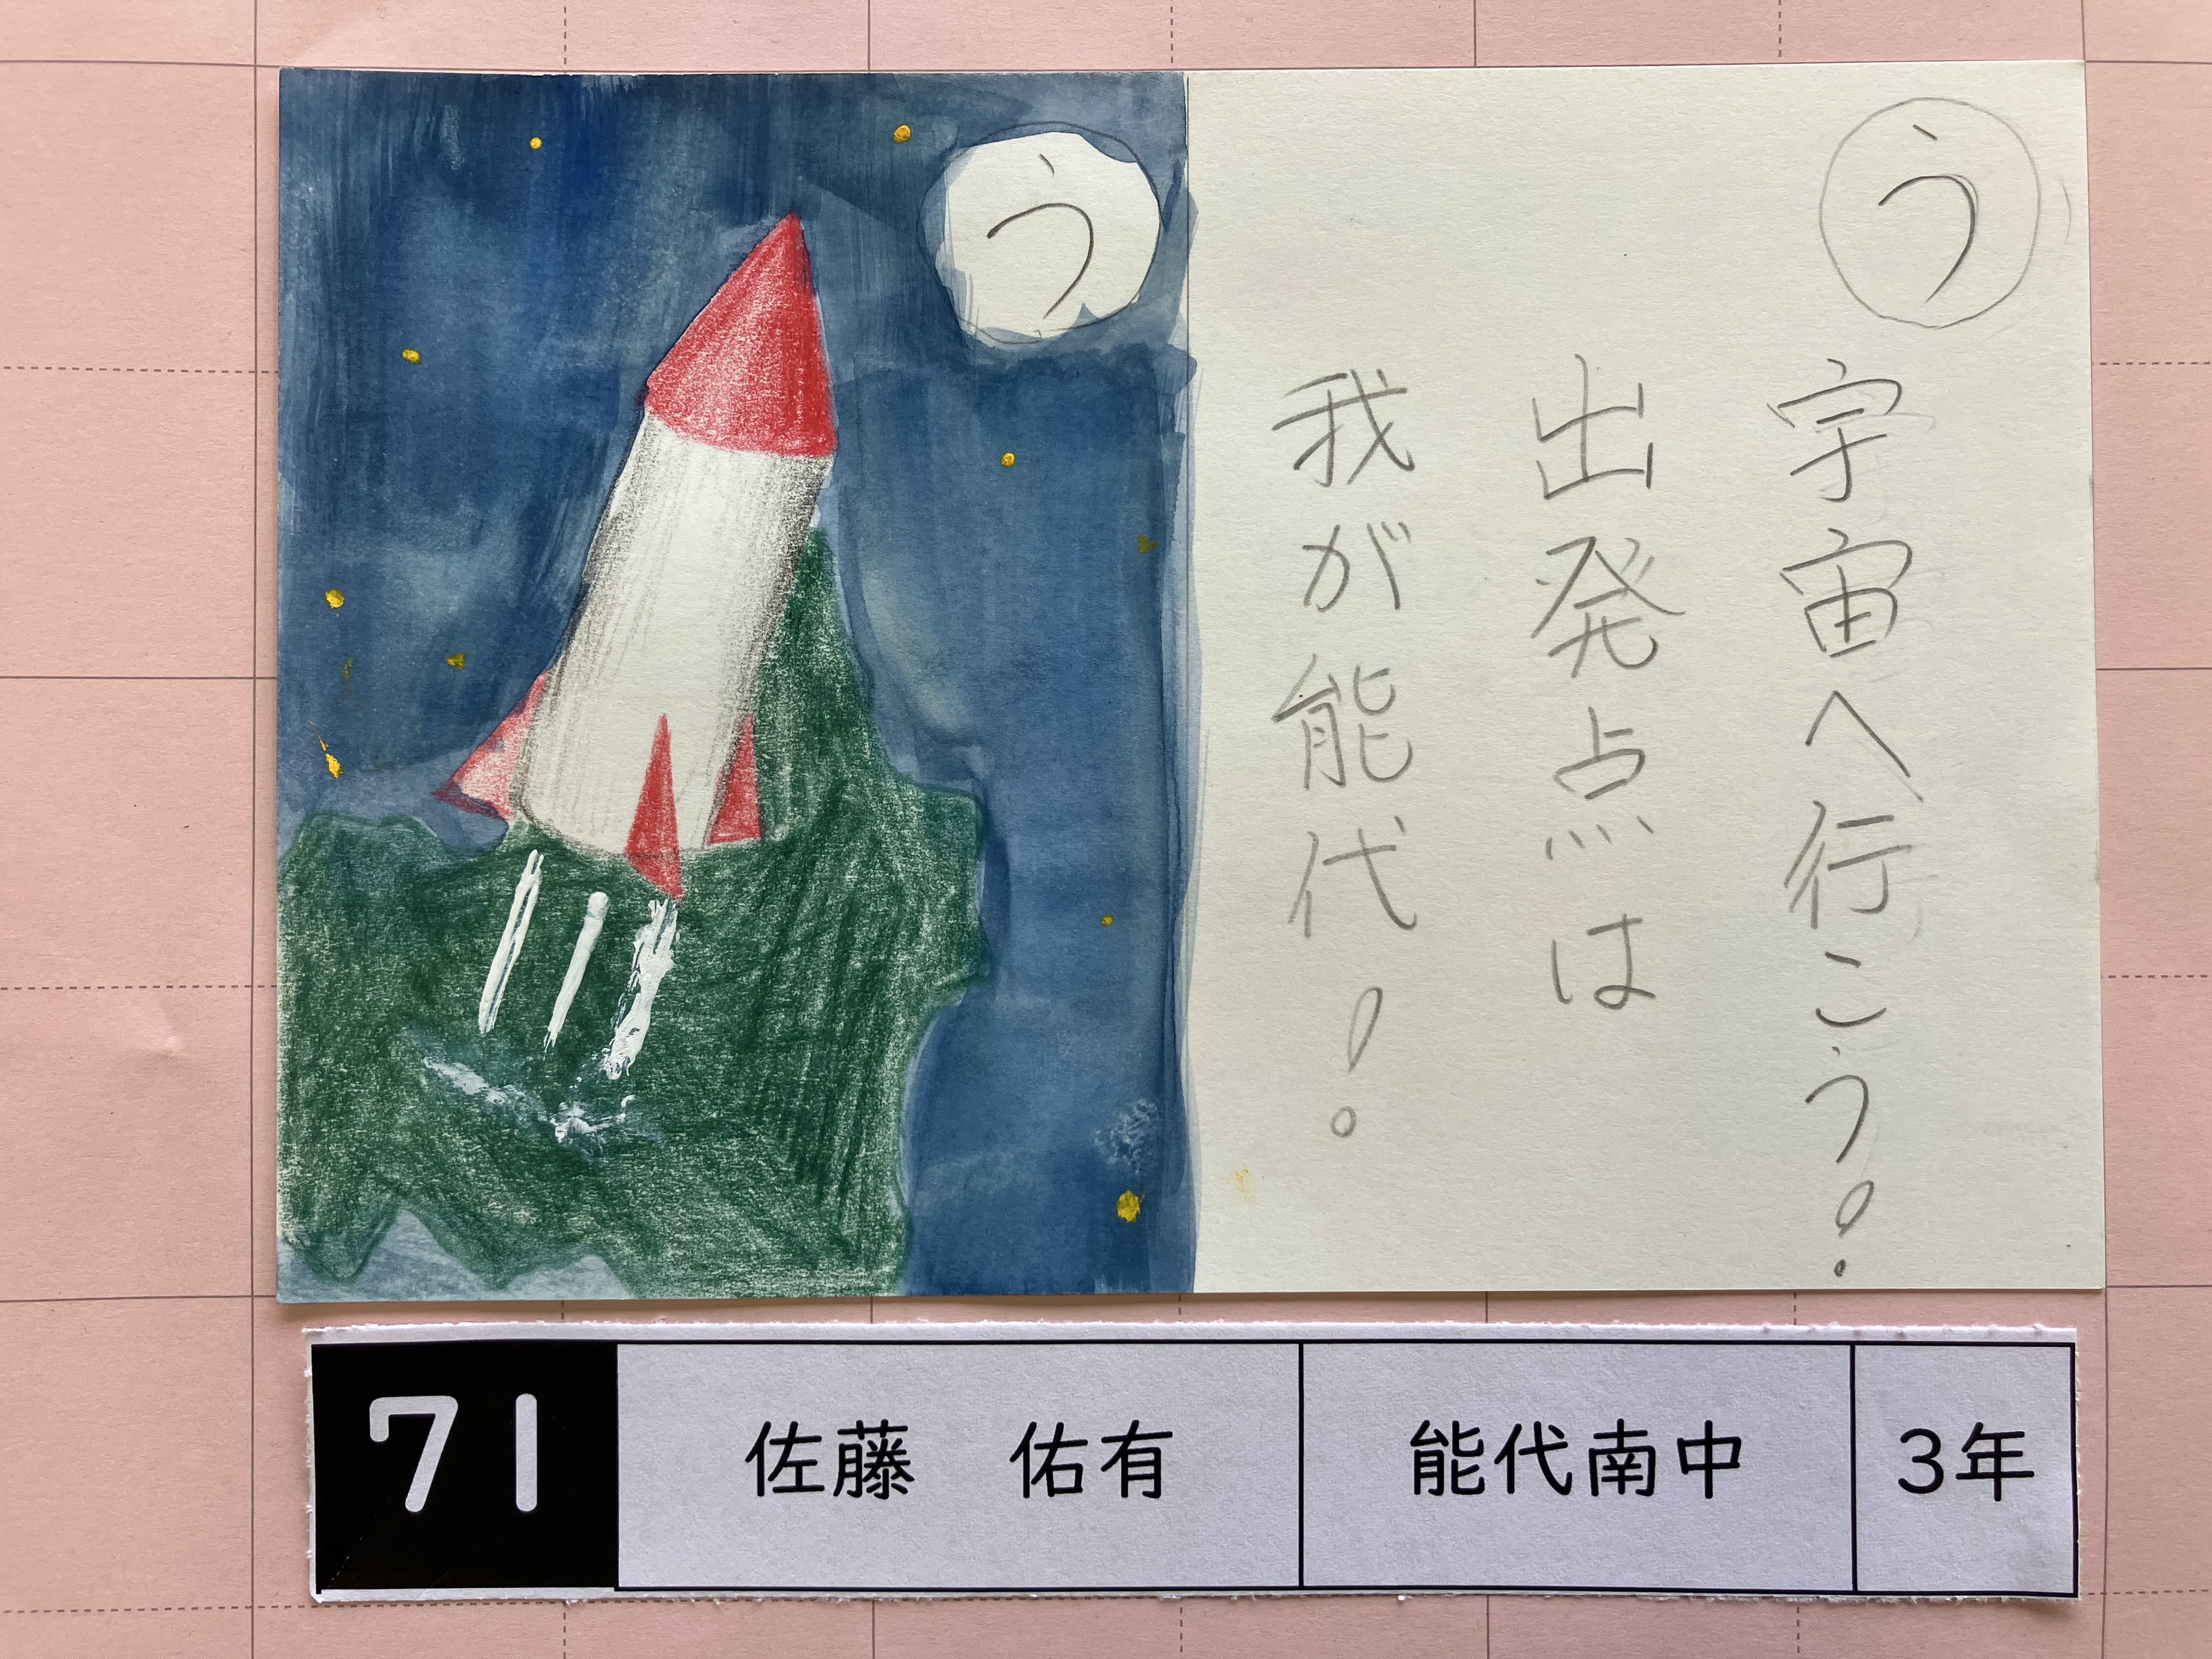 う
う
宇宙へ行こう!
出発点は
我が能代!
71 佐藤 佑有 能代南中 3年